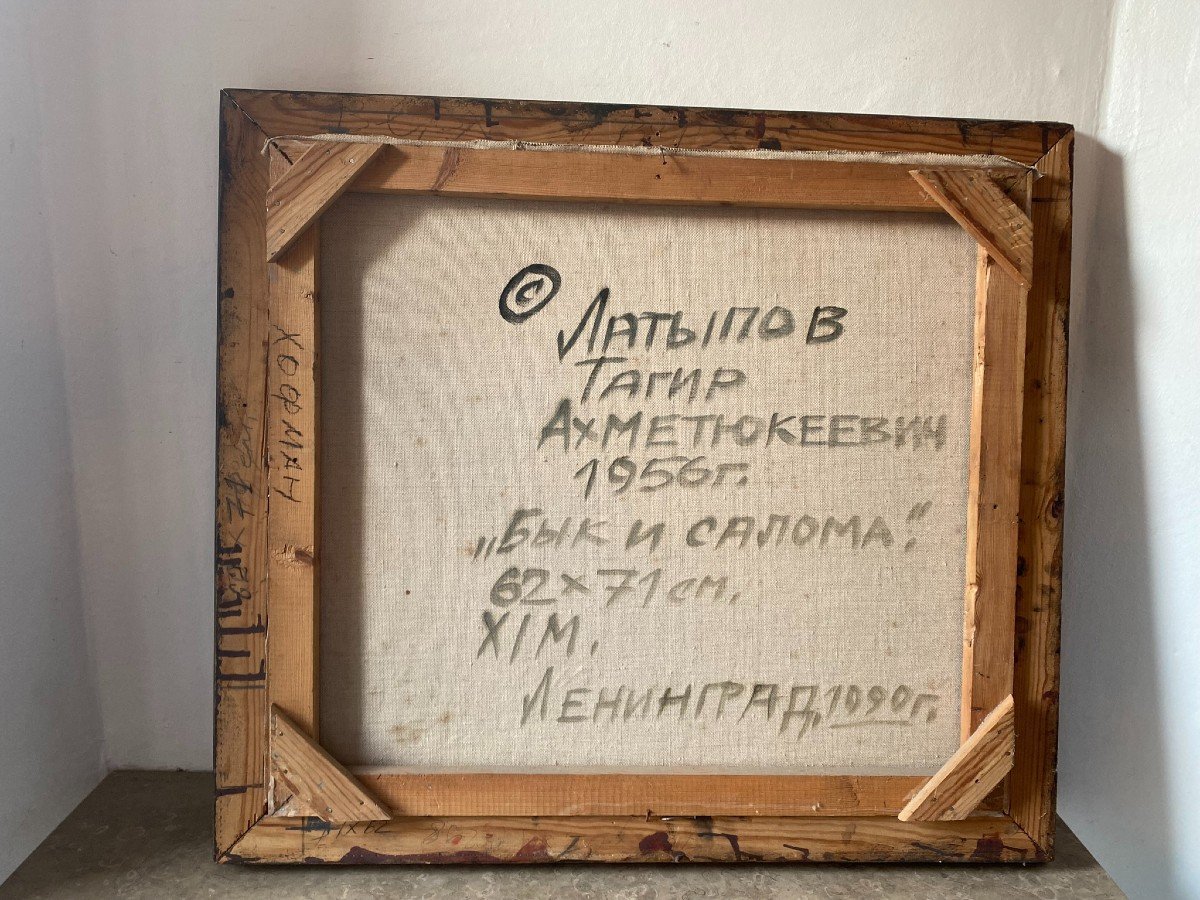 © Латыпов
Тагир
Ахметюкеевич
1956г.
„Бык и салома“.
62×71 см.
Х/М.
Ленинград, 1990г.
ХОФМАН